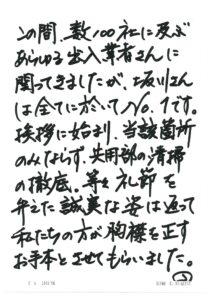 この間、数100社に及ぶ
あらゆる出入業者さんに
関ってきましたが、坂川さん
は全てに於いてNo.1です。
挨拶に始まり、当該箇所
のみならず、共用部の清掃
の徹底。等々礼節を
弁えた誠実な姿は返って
私たちの方が胸襟を正す
お手本とさせてもらいました。